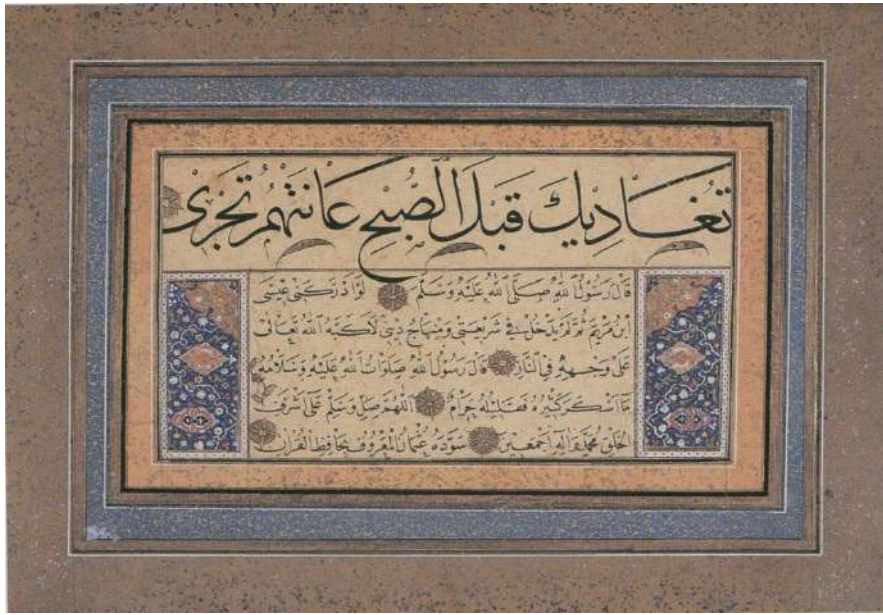 تُغَادِيكَ قَبْلَ الصُّبْحِ عَانَتُهُمْ تَجْرِى
قَالَ رَسُولُ اللهِ صَلَّى اللهُ عَلَيْهِ وَسَلَّمَ لَوْ اَدْرَكَنِى عِيْسَى
ابْنُ مَرْيَمَ ثُمَّ لَمْ يَدْخُلْ فِى شَرِيعَتِى وَمِنْهَاجِ دِينِى لَاَكَبَّهُ اللهُ تَعَالَى
عَلَى وَجْهِهِ فِى النَّارِ قَالَ رَسُولُ اللهِ صَلَوَاتُ اللهِ عَلَيْهِ وَسَلَامُهُ
مَا اَسْكَرَ كَثِيرُهُ فَقَلِيلُهُ حَرَامٌ اَللّهُمَّ صَلِّ وَسَلِّمْ عَلَى اَشْرَفِ
الْخَلْقِ مُحَمَّدٍ وَاٰلِهِ اَجْمَعِينَ سَوَّدَهُ عُثْمَانُ الْمَعْرُوفُ بِحَافِظِ الْقُرْاٰنِ